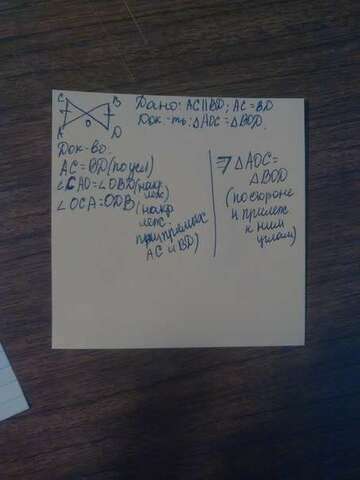 C B
A O D
Дано: AC∥BD; AC=BD
Док-ть: △AOC=△BOD.
Док-во:
AC=BD(по усл)
∠CAO=∠OBD(накр
леж)
∠OCA=ODB(накр
леж.
при прямых
AC и BD)
⇒△AOC=
△BOD
(по стороне
и прилеж
к ним
углам)